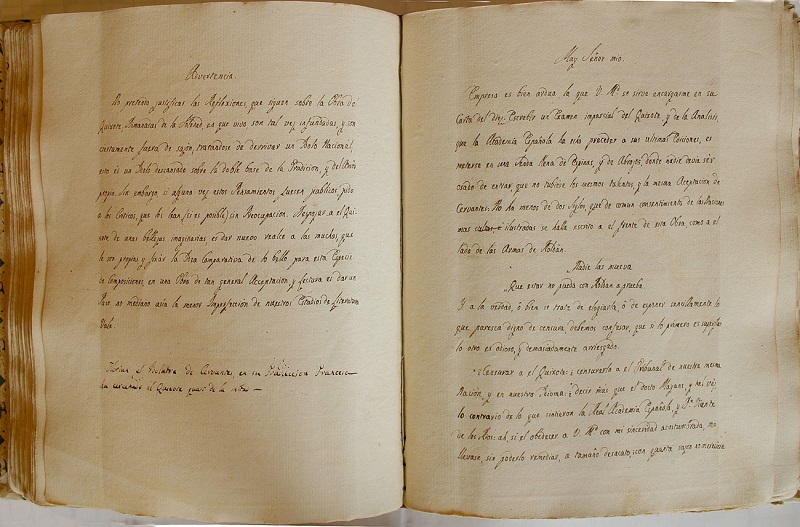 Advertencia.
No pretendo justificar las Reflexiones, que siguen sobre la Obra de
Quixote. Emanadas de la Soledad en que vivo son tal vez infundadas, y son
ciertamente fuera de sazon, tratandose de derrivar un Ydolo Nacional,
esto és un Ydolo descansado sobre la doble base de la Tradicion, y del Amor
propio. Sin embargo, si alguna vez estos Pensamientos fuesen publicos, pido
a los Criticos, que los lean (si es posible) sin Preocupacion. Despojar a el Qui-
xote de unas bellezas imaginarias es dar nuevo realce a las muchas, que
le son propias y fixár la Idea Comparativa de lo bello para esta Especie
de Composiciones, en una Obra de tan general Aceptacion y Lectura és dar un
Paso no mediano acia la menor Imperfeccion de nuestros Estudios de Literatura
Vale.
de Cervantes, en su Traduccion Francesa
el Quixote
Muy Señor mio.
Empresa es bien ardua la que V. Md. se sirve encargarme en su
Carta del diez. Escrebir un Examen imparcial del Quixote, y de la Analisis,
que la Academia Española ha echo preceder a sus ultimas Ediciones, es
meterse en una Senda llena de Espinas, y de Abrojos, donde nadie devia ser
osado de entrar, que no tubiese los mesmos talentos, y la mesma Aceptacion de
Cervantes. No ha menos de dos Siglos, que de comun consentimiento de las Naciones
mas cultas, é ilustradas se halla escrito a el frente de esta Obra, como a el
lado de las Armas de Roldán.
Nadie las mueva
Que estar no pueda con Roldan a prueba.
Y a la verdad, ó bien se trate de elogiarla, ó de exponer sencillamente lo
que paresca digno de censura, debemos confesar, que si lo primero es superfluo
lo otro es odioso, y demasiadamente arriesgado.
¿Censurar a el Quixote: ¿censurarlo a el Tribunal de nuestra mesma
Nacion, y en nuestro Idioma: ¿decir mas que el docto Mayans, y tal vez
lo contrario de lo que sintieron la Real Academia Española, y Dn. Vicente
de los Rios: ah, si el obedecer a V. Md. con mi sinceridad acostumbrada, me
llevase, sin poderlo remediar, a tamaño desacato; con quanta